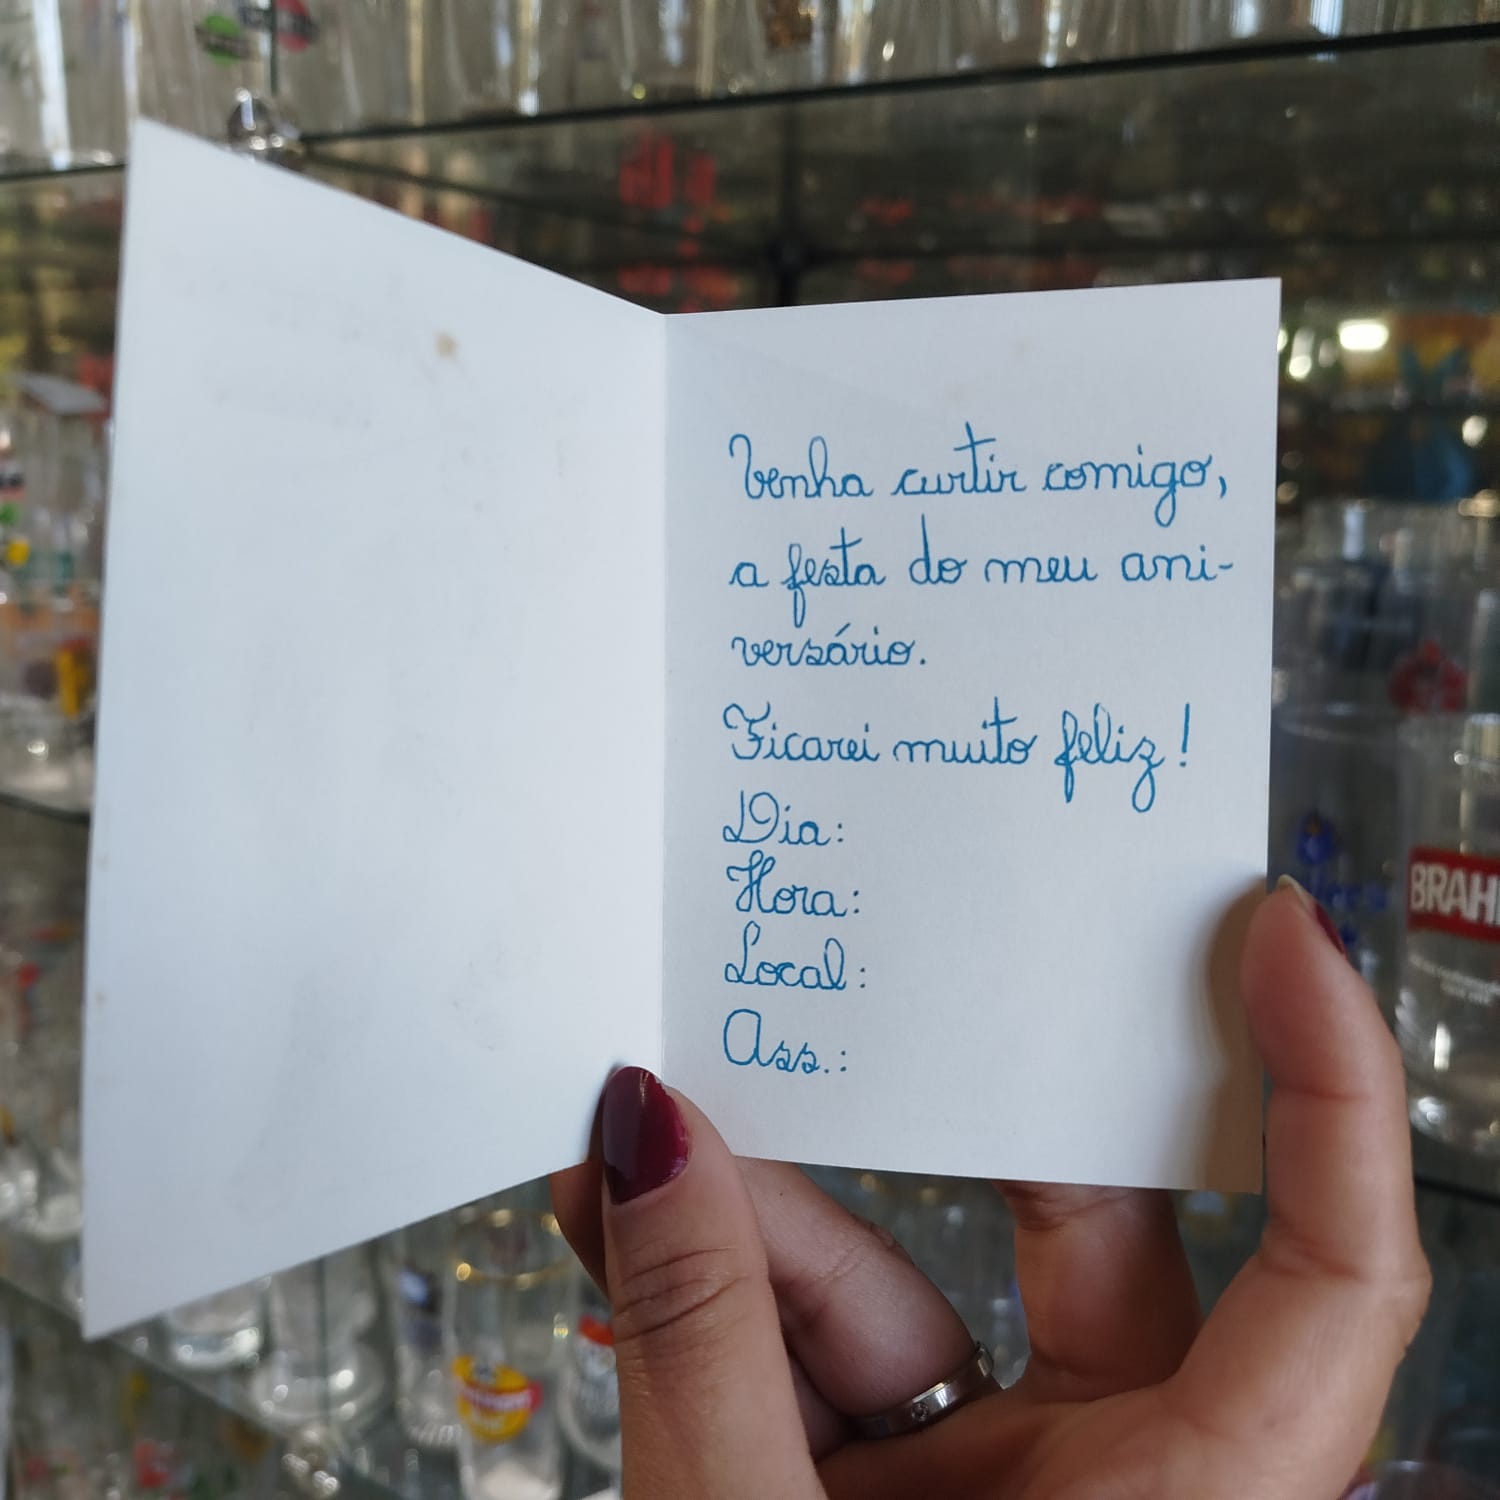 Venha curtir comigo,
a festa do meu ani-
versário.
Ficarei muito feliz!
Dia:
Hora:
Local:
Ass.:
BRAH